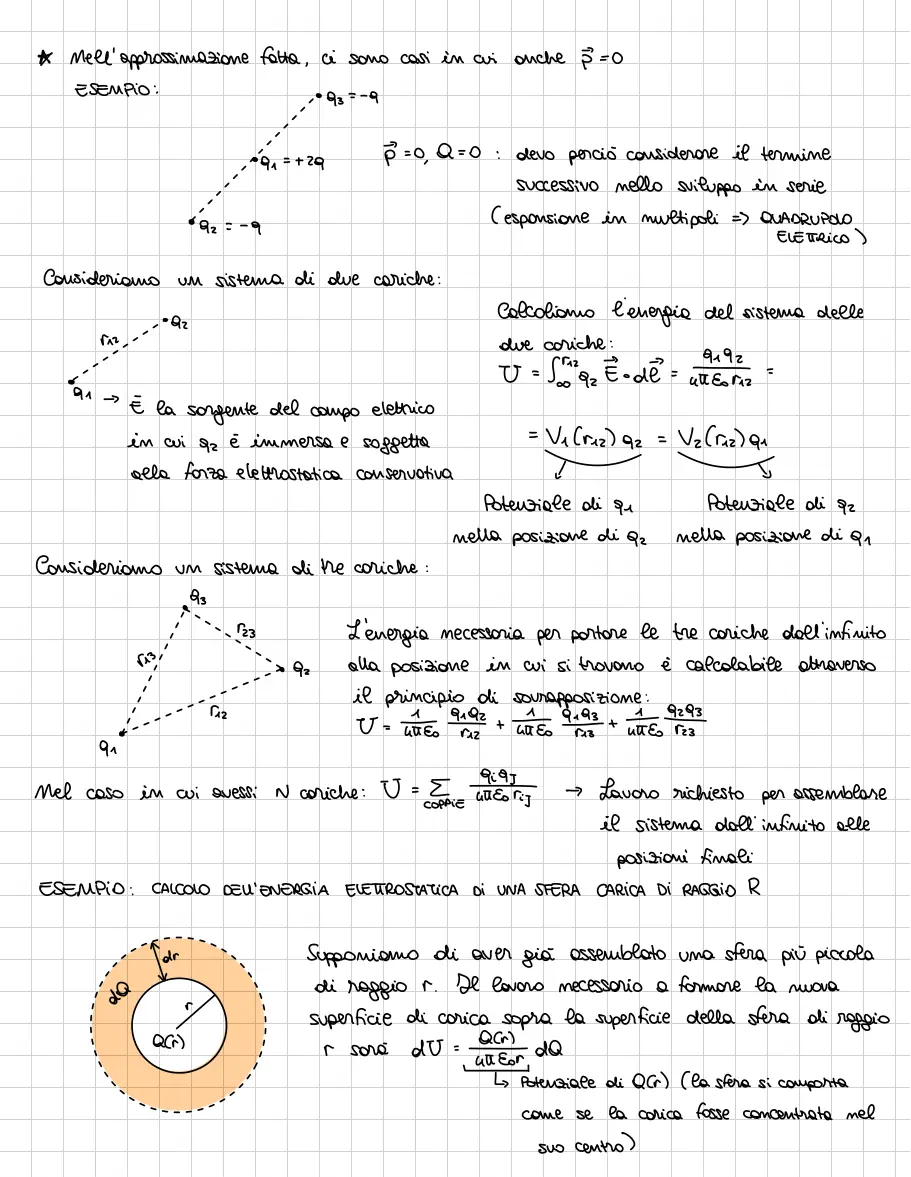 * Nell'approssimazione fatta, ci sono casi in cui anche p⃗ = 0
ESEMPIO:
q₃ = -q
q₁ = +2q
q₂ = -q
p⃗ = 0, Q = 0 : devo perciò considerare il termine
successivo nello sviluppo in serie
(espansione in multipoli => QUADRUPOLO
ELETTRICO)
Consideriamo un sistema di due cariche:
q₂
r₁₂
q₁ → È la sorgente del campo elettrico
in cui q₂ è immersa e soggetta
alla forza elettrostatica conservativa
Calcoliamo l'energia del sistema delle
due cariche:
U = ∫_∞^r₁₂ q₂ E⃗ • dℓ⃗ = q₁q₂ / 4πε₀r₁₂ =
= V₁(r₁₂) q₂ = V₂(r₁₂) q₁
Potenziale di q₁ Potenziale di q₂
nella posizione di q₂ nella posizione di q₁
Consideriamo un sistema di tre cariche:
q₃
r₂₃
r₁₃
q₂
r₁₂
q₁
L'energia necessaria per portare le tre cariche dall'infinito
alla posizione in cui si trovano è calcolabile attraverso
il principio di sovrapposizione:
U = 1/4πε₀ q₁q₂/r₁₂ + 1/4πε₀ q₁q₃/r₁₃ + 1/4πε₀ q₂q₃/r₂₃
Nel caso in cui avessi N cariche: U = Σ_COPPIE qᵢqⱼ / 4πε₀rᵢⱼ → Lavoro richiesto per assemblare
il sistema dall'infinito alle
posizioni finali
ESEMPIO: CALCOLO DELL'ENERGIA ELETTROSTATICA DI UNA SFERA CARICA DI RAGGIO R
dr
dQ
r
Q(r)
Supponiamo di aver già assemblato una sfera più piccola
di raggio r. Il lavoro necessario a formare la nuova
superficie di carica sopra la superficie della sfera di raggio
r sarà dU = Q(r) / 4πε₀r dQ
↳ Potenziale di Q(r) (la sfera si comporta
come se la carica fosse concentrata nel
suo centro)